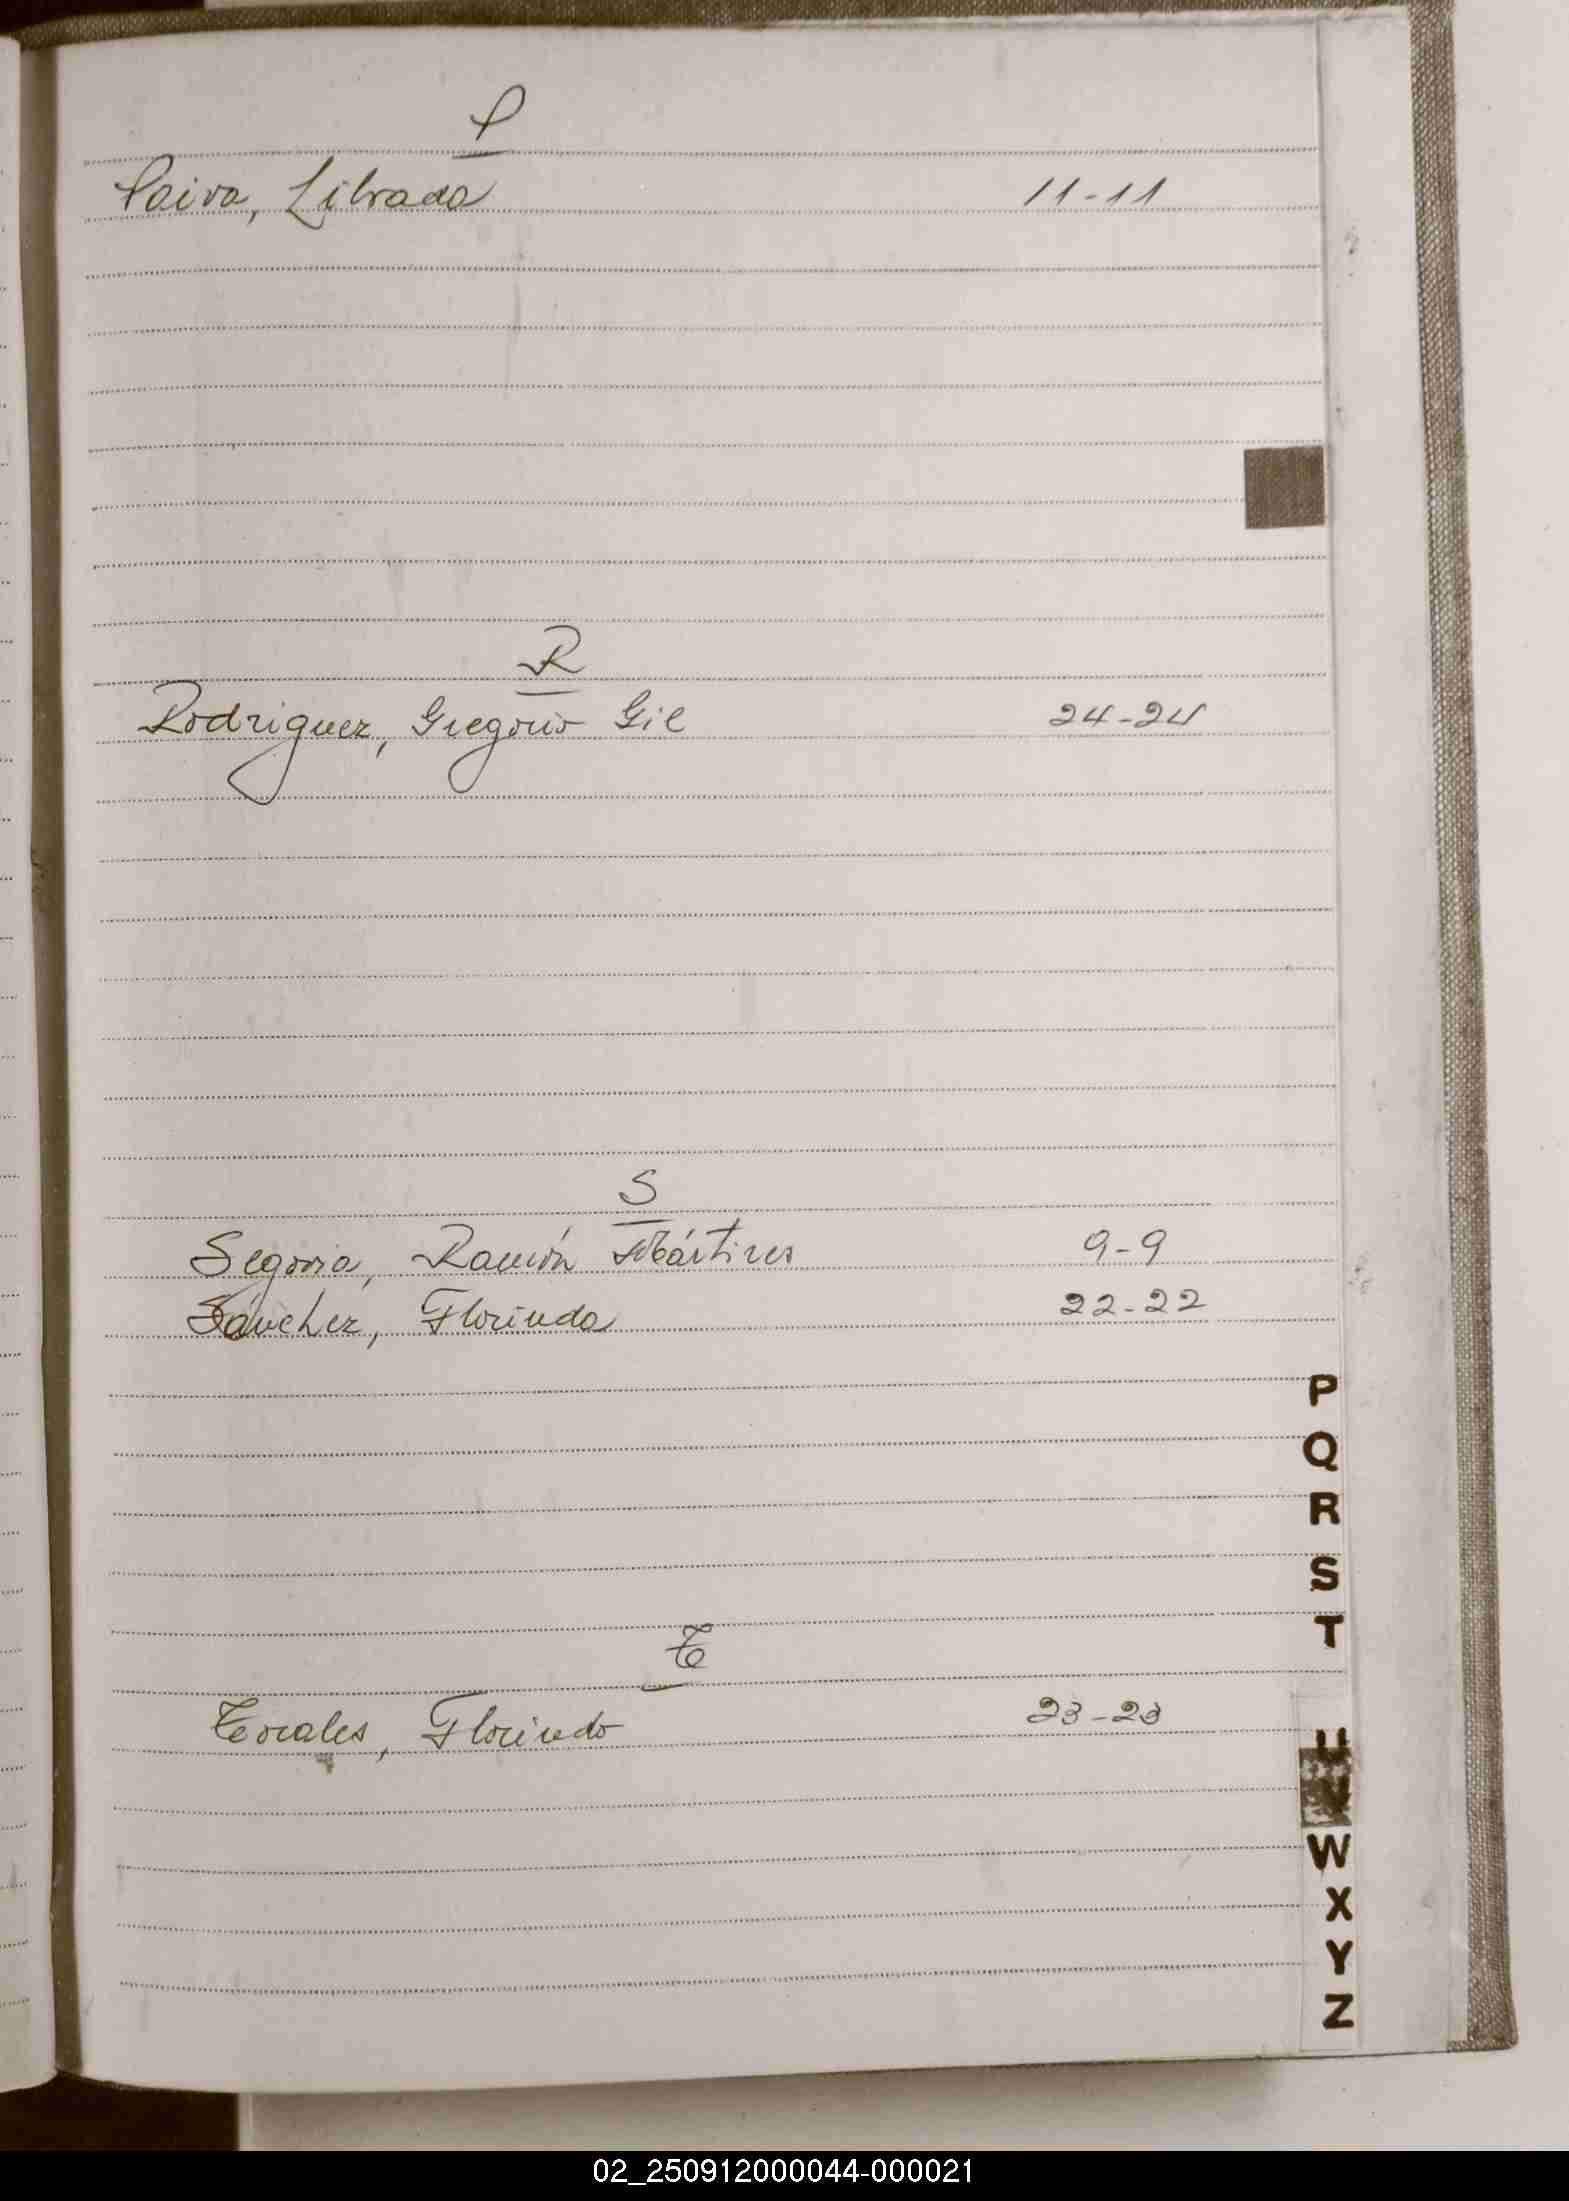 P
Paiva, Librada 11-11
R
Rodriguez, Gregorio Gil 24-24
S
Segovia, Ramón Mártires 9-9
Sánchez, Florinda 22-22
T
Torales, Florindo 23-23
P
Q
R
S
T
U
V
W
X
Y
Z
02_250912000044-000021